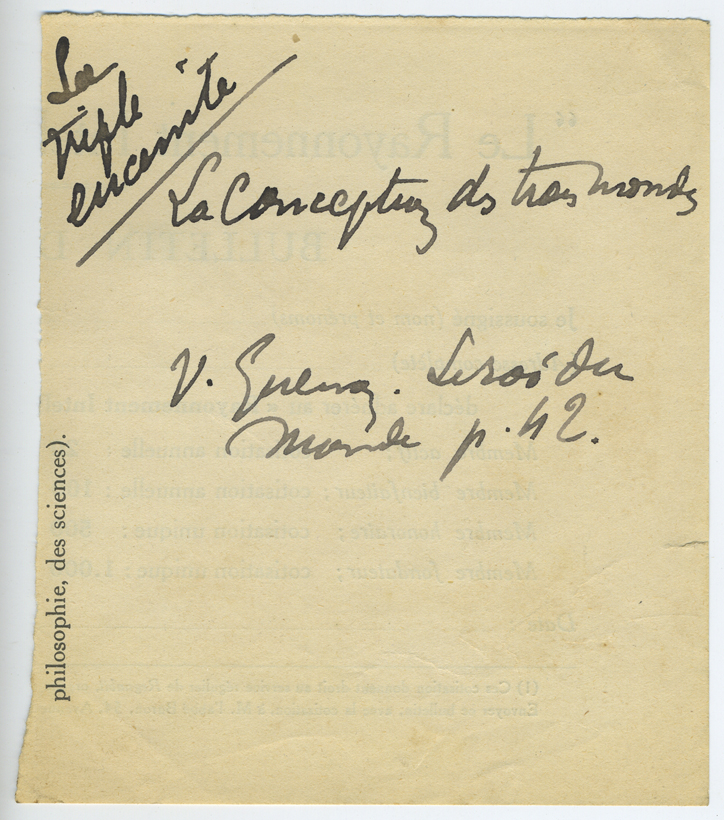 La
triple
enceinte
La Conception des trois mondes
V. Guenon. Le roi du
Monde p. 42.
philosophie, des sciences).
"Le Rayonnement
BULLETIN
Je soussigné (nom et prénoms)
déclare adhérer au « Rayonnement Intel
cotisation annuelle :
Membre bienfaiteur : cotisation annuelle :
Membre honoraire : cotisation unique :
Membre fondateur : cotisation unique : 1.00